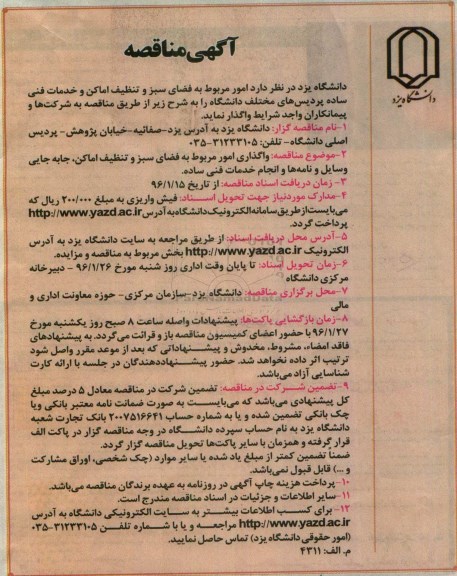 آگهی مناقصه
دانشگاه یزد
دانشگاه یزد در نظر دارد امور مربوط به فضای سبز و تنظیف اماکن و خدمات فنی
ساده پردیس‌های مختلف دانشگاه را به شرح زیر از طریق مناقصه به شرکت‌ها و
پیمانکاران واجد شرایط واگذار نماید.
۱-نام مناقصه گزار: دانشگاه یزد به آدرس یزد-صفائیه-خیابان پژوهش- پردیس
اصلی دانشگاه- تلفن: ۳۱۲۳۳۱۰۵-۰۳۵
۲-موضوع مناقصه: واگذاری امور مربوط به فضای سبز و تنظیف اماکن، جابه جایی
وسایل و نامه‌ها و انجام خدمات فنی ساده.
۳- زمان دریافت اسناد مناقصه: از تاریخ ۹۶/۱/۱۵
۴-مدارک موردنیاز جهت تحویل اسناد: فیش واریزی به مبلغ ۲۰۰/۰۰۰ ریال که
می‌بایست از طریق سامانه الکترونیک دانشگاه به آدرس http://www.yazd.ac.ir
پرداخت گردد.
۵-آدرس محل دریافت اسناد: از طریق مراجعه به سایت دانشگاه یزد به آدرس
الکترونیک http://www.yazd.ac.ir بخش مربوط به مناقصه و مزایده.
۶-زمان تحویل اسناد: تا پایان وقت اداری روز شنبه مورخ ۹۶/۱/۲۶ - دبیرخانه
مرکزی دانشگاه
۷-محل برگزاری مناقصه: دانشگاه یزد-سازمان مرکزی- حوزه معاونت اداری و
مالی
۸-زمان بازگشایی پاکت‌ها: پیشنهادات واصله ساعت ۸ صبح روز یکشنبه مورخ
۹۶/۱/۲۷ با حضور اعضای کمیسیون مناقصه باز و قرائت می‌گردد. به پیشنهادهای
فاقد امضاء، مشروط، مخدوش و پیشنهاداتی که بعد از موعد مقرر واصل شود
ترتیب اثر داده نخواهد شد. حضور پیشنهاددهندگان در جلسه با ارائه کارت
شناسایی آزاد می‌باشد.
۹-تضمین شرکت در مناقصه: تضمین شرکت در مناقصه معادل ۵ درصد مبلغ
کل پیشنهادی می‌باشد که می‌بایست به صورت ضمانت نامه معتبر بانکی ویا
چک بانکی تضمین شده و یا به شماره حساب ۲۰۰۷۵۱۶۶۴۱ بانک تجارت شعبه
دانشگاه یزد به نام حساب سپرده دانشگاه در وجه مناقصه گزار در پاکت الف
قرار گرفته و همزمان با سایر پاکت‌ها تحویل مناقصه گزار گردد.
ضمناً تضمین کمتر از مبلغ یاد شده یا سایر موارد (چک شخصی، اوراق مشارکت
و ...) قابل قبول نمی‌باشد.
۱۰-پرداخت هزینه چاپ آگهی در روزنامه به عهده برندگان مناقصه می‌باشد.
۱۱-سایر اطلاعات و جزئیات در اسناد مناقصه مندرج است.
۱۲-برای کسب اطلاعات بیشتر به سایت الکترونیکی دانشگاه به آدرس
http://www.yazd.ac.ir مراجعه و یا با شماره تلفن ۳۱۲۳۳۱۰۵-۰۳۵
(امور حقوقی دانشگاه یزد) تماس حاصل نمایید.
م. الف: ۴۳۱۱